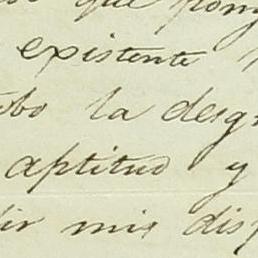 que pong
existente
tubo la desgr
aptitud y
dir mis disp